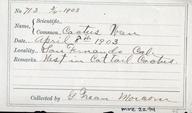 No 713 3/5 1903
Scientific,
Name
Common, Cactus Wren
Date April 8th 1903
Locality, San Fernando Cal.
Remarks, Nest in Cat tail Cactus.
Collected by
MVZ 2274